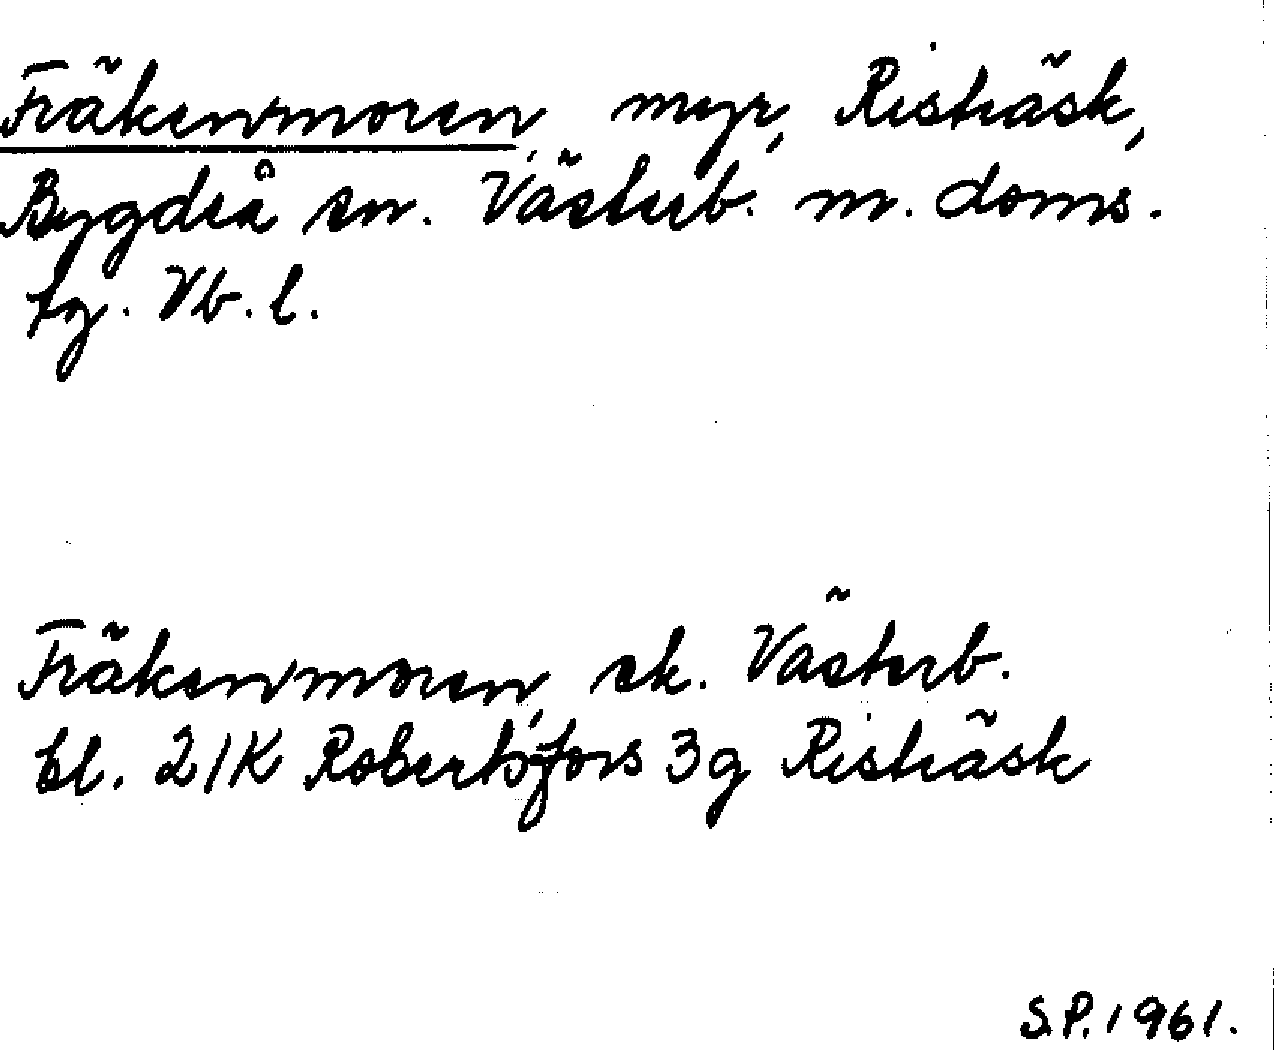 Fräkenmoren, myr, Risträsk,
Bygdeå sn. Västerb. m. doms.
tg. Vb. l.
Fräkenmoren, ek. Västerb.
bl. 21K Robertsfors 3g Risträsk
S.P. 1961.